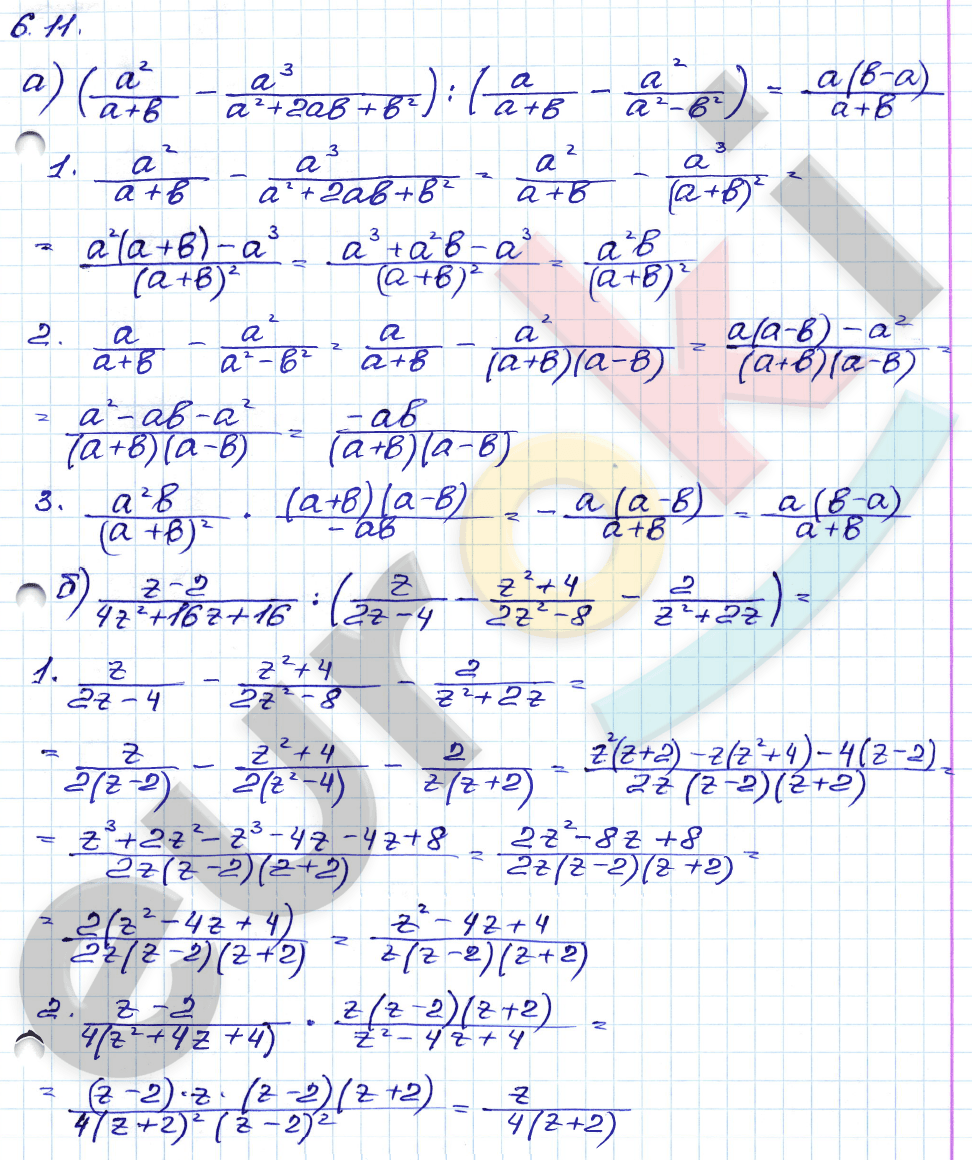 6.11.
а) (a²/(a+b) − a³/(a²+2ab+b²)) : (a/(a+b) − a²/(a²−b²)) = a(b−a)/(a+b)
1. a²/(a+b) − a³/(a²+2ab+b²) = a²/(a+b) − a³/(a+b)² =
= (a²(a+b)−a³)/(a+b)² = (a³+a²b−a³)/(a+b)² = a²b/(a+b)²
2. a/(a+b) − a²/(a²−b²) = a/(a+b) − a²/((a+b)(a−b)) = (a(a−b)−a²)/((a+b)(a−b)) =
= (a²−ab−a²)/((a+b)(a−b)) = −ab/((a+b)(a−b))
3. a²b/(a+b)² · (a+b)(a−b)/(−ab) = −a(a−b)/(a+b) = a(b−a)/(a+b)
б) (z−2)/(4z²+16z+16) : (z/(2z−4) − (z²+4)/(2z²−8) − 2/(z²+2z)) =
1. z/(2z−4) − (z²+4)/(2z²−8) − 2/(z²+2z) =
= z/(2(z−2)) − (z²+4)/(2(z²−4)) − 2/(z(z+2)) = (z²(z+2)−z(z²+4)−4(z−2))/(2z(z−2)(z+2)) =
= (z³+2z²−z³−4z−4z+8)/(2z(z−2)(z+2)) = (2z²−8z+8)/(2z(z−2)(z+2)) =
= 2(z²−4z+4)/(2z(z−2)(z+2)) = (z²−4z+4)/(z(z−2)(z+2))
2. (z−2)/(4(z²+4z+4)) · z(z−2)(z+2)/(z²−4z+4) =
= (z−2)·z·(z−2)(z+2)/(4(z+2)²(z−2)²) = z/(4(z+2))
euroki